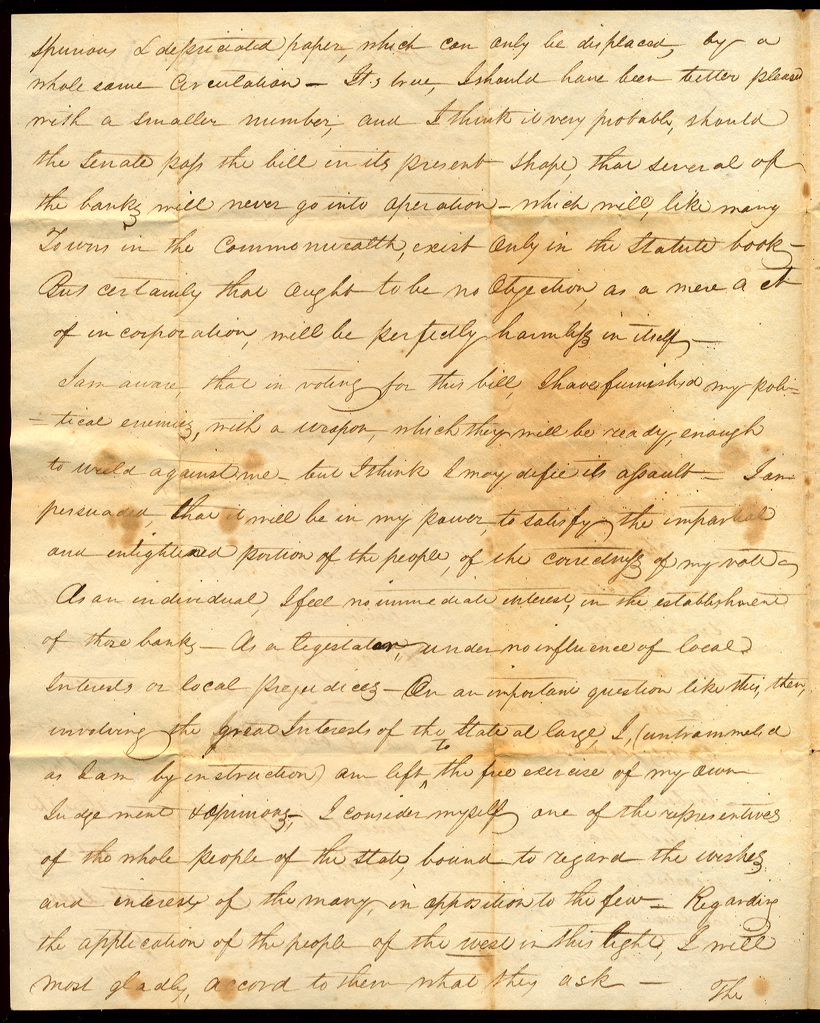 spurious & depriciated paper, which can only be displaced, by a
whole some Circulation — Its true, I should have been better pleased
with a smaller number, and I think it very probable, should
the Senate pass the bill in its present shape, that several of
the banks will never go into operation — which will, like many
Towns in the Commonwealth, exist only in the Statute book —
But certainly that ought to be no Objection, as a mere act
of incorporation, will be perfectly harmless in itself —
I am aware, that in voting for this bill, I have furnished my poli-
-tical enemies, with a weapon, which they will be ready enough
to wield against me — but I think I may defie its assault — I am
persuaded, that it will be in my power, to satisfy the impartial
and enlightened portion of the people, of the correctness of my vote —
As an individual, I feel no immediate interest, in the establishment
of those banks — As a legislator, under no influence of local
Interests or local prejudices — On an important question like this, then,
involving the great Interests of the State at large, I, (untrammeled
as I am by instruction) am left to the free exercise of my own
Judgement & opinions — I consider myself one of the representives
of the whole people of the State, bound to regard the wishes
and interests of the many, in opposition to the few — Regarding
the application of the people of the west in this light, I will
most gladly, accord to them what they ask —
The